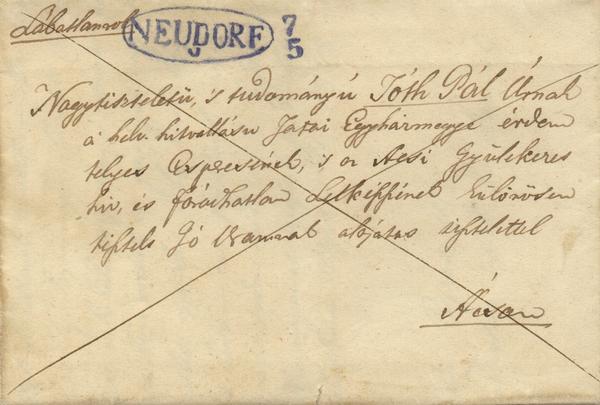 Lábatlanról NEUDORF 7/5
Nagytiszteletü, 's tudományú Tóth Pál Úrnak
a helv. hitvallásu Tatai Egyházmegye érdem
telyes Esperesének, 's az Acsi Gyülekezet
hiv, és fáradhatlan Lelkipásztorának különösen
tisztelt Jó Uramnak alázatos tisztelettel
Ácson